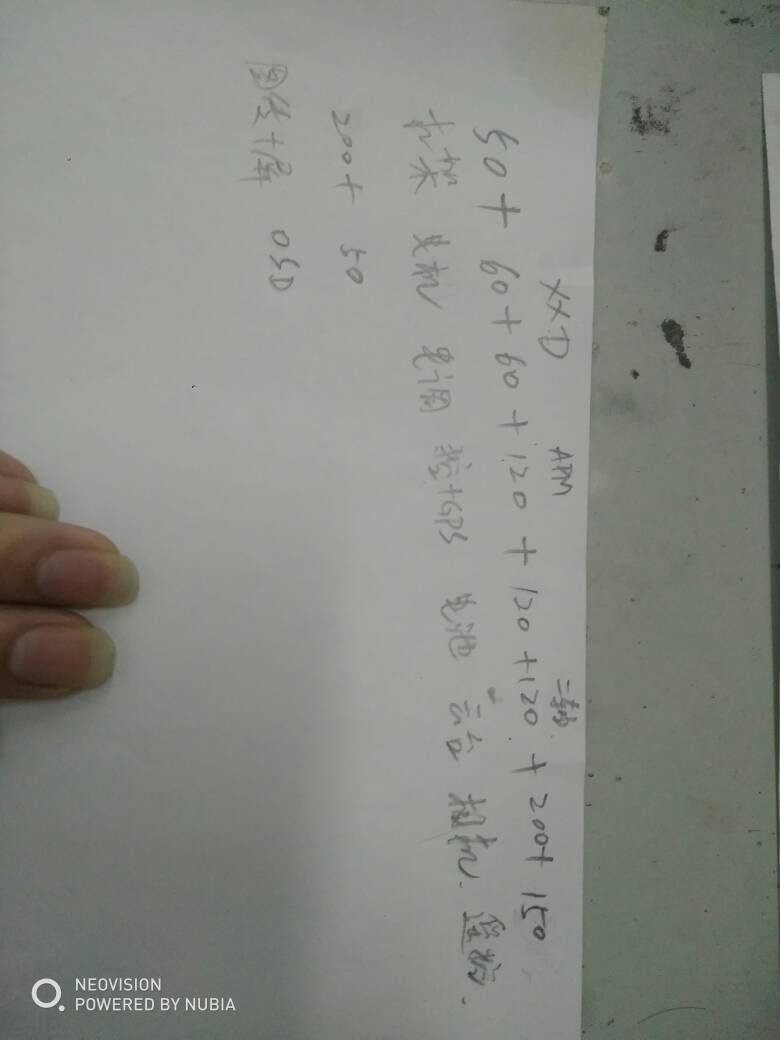 XXD APM 二轴
50+60+60+120+120+120+200+150
机架 电机 电调 控+GPS 电池 云台 相机. 遥控.
200+ 50
图传+屏 OSD
NEOVISION
POWERED BY NUBIA